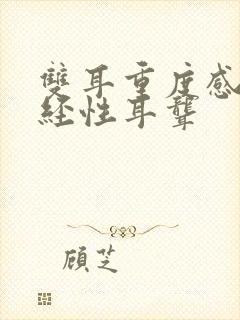 雙耳重度感
经性耳聾
顾芝